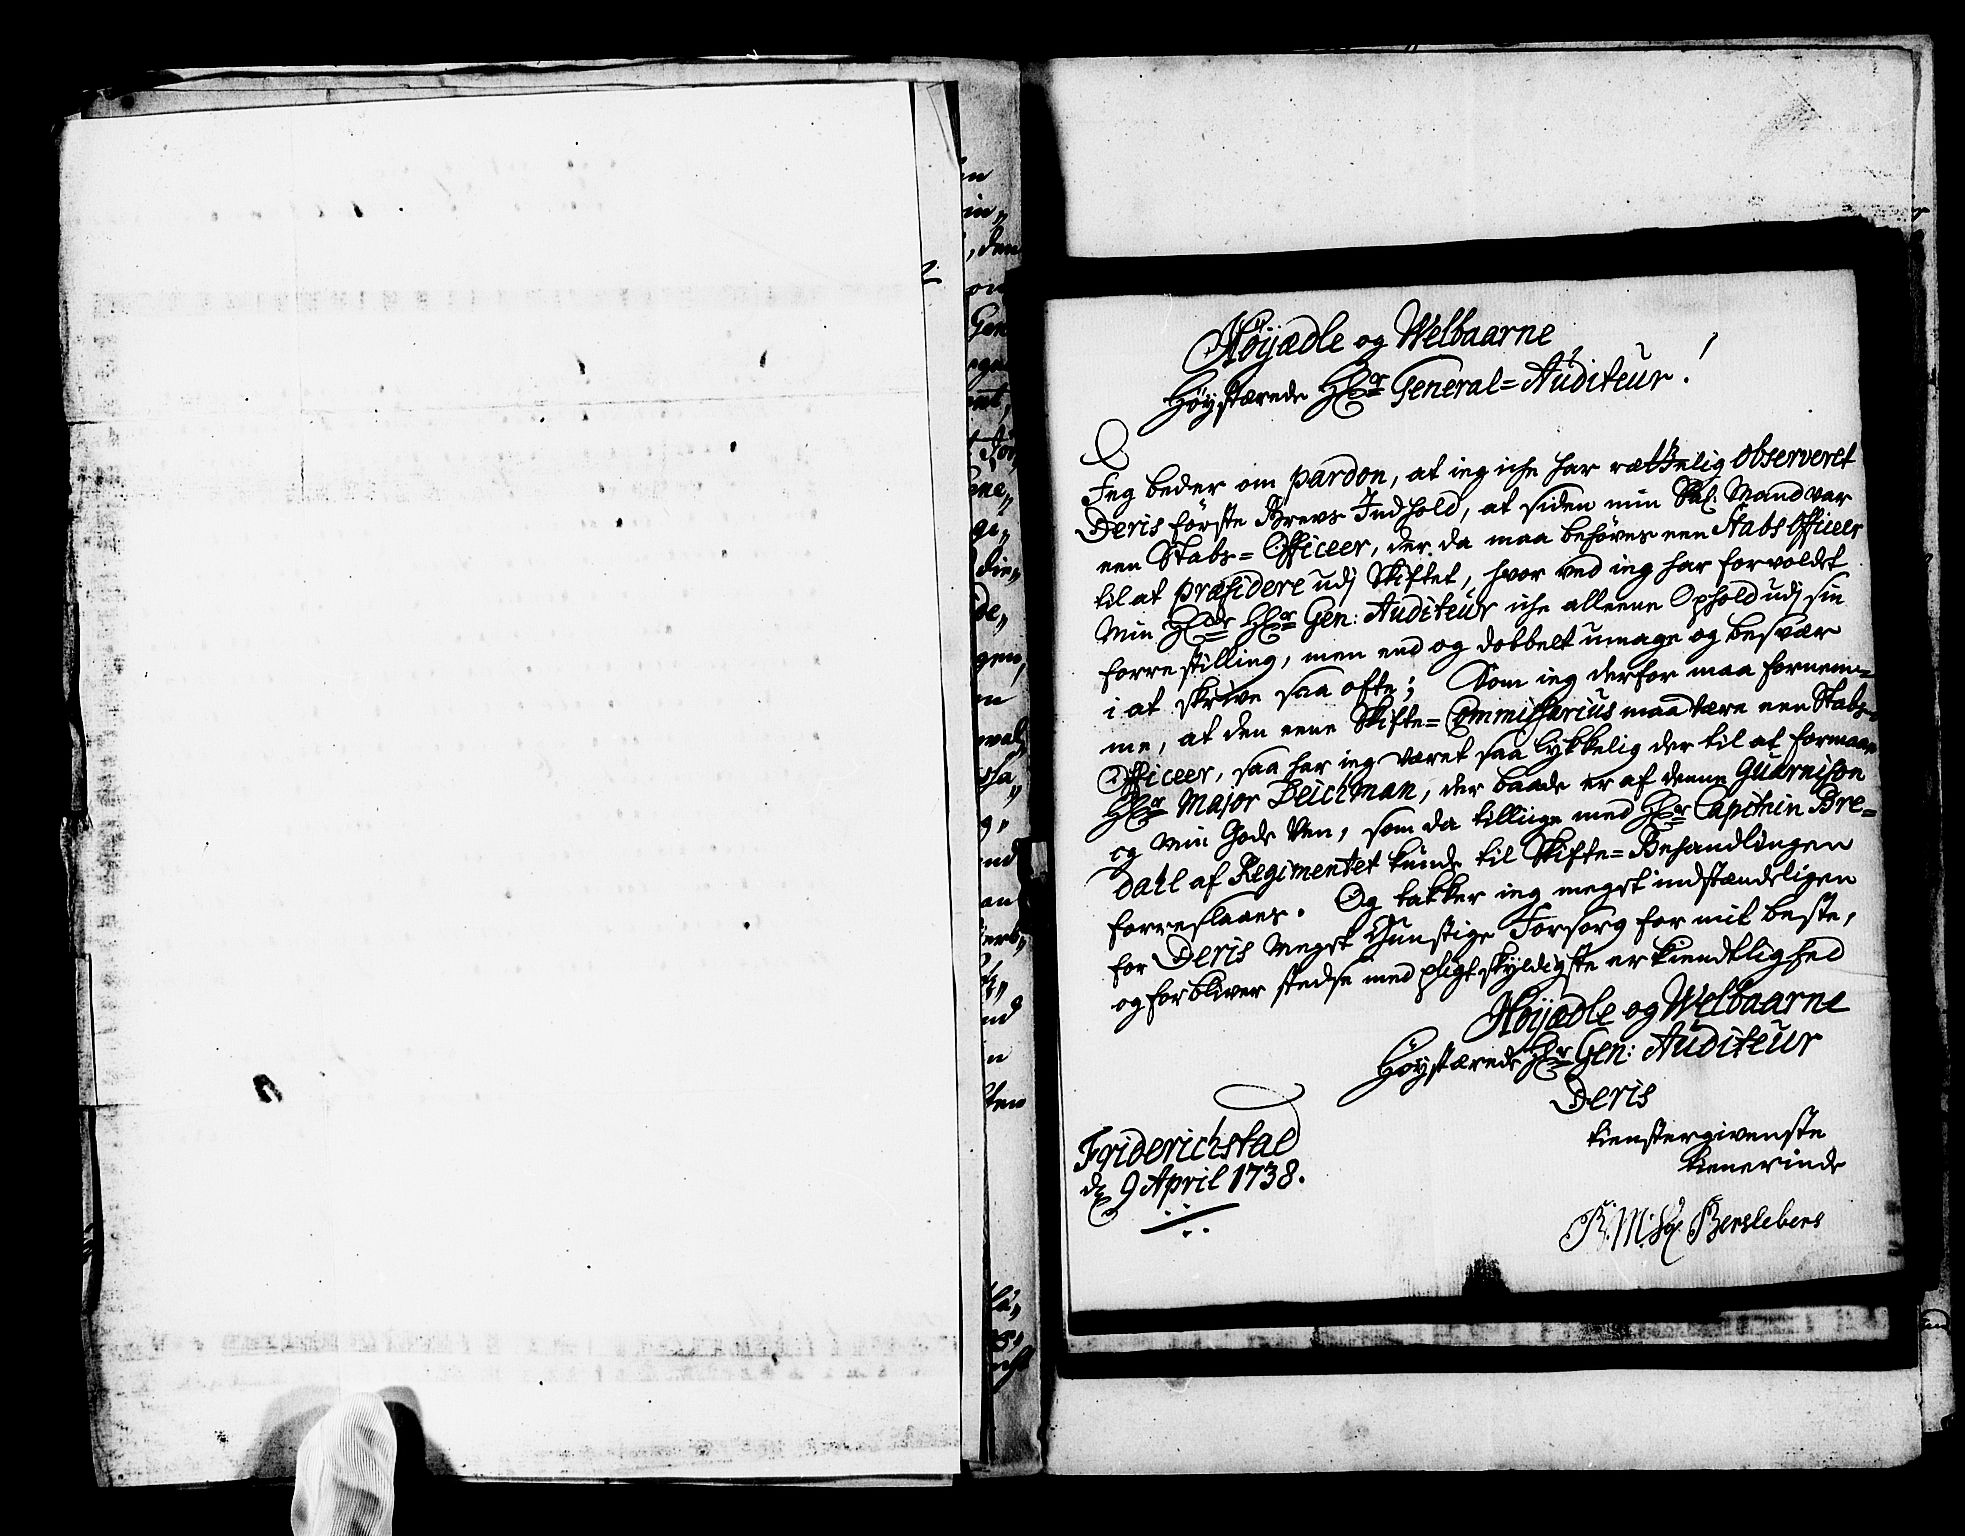 Høÿædle og Welbaarne
Høystærede Hr General=Auditeur!
Jeg beder om pardon, at ieg iche har rættelig observeret
Deris første Brevs Indhold, at siden min Sal. Mand var
een Stabs=Officeer, der da maa behøves een Stabs Officeer
til at præsidere udj Skiftet, hvor ved ieg har forvoldet
min Hr Gen: Auditeur iche alleene Ophold udj sin
forrestilling, men end og dobbelt umage og besvær
i at skrive saa ofte; Som ieg derfor maa fornem=
me, at den eene Skifte=Commissarius maa være een Stabs=
Officeer, saa har ieg været saa lykkelig der til at formaae
Hr Major Deichman, der baade er af denne Guarnison
og min Gode Ven, som da tillige med Hr Capitein Bre=
dahl af Regimentet kunde til Skifte=Behandlingen
forreslaaes. Og takker ieg megst indstændeligen
for Deris megst Gunstige Forsorg for mit beste,
og forbliver stedse med pligtskyldigste erkiendtlighed
Høÿædle og Welbaarne
Høystærede Hr Gen: Auditeur
Deris
tienstergivenste
tienerinde
Friderichstad
d 9 April 1738.
Berslebers